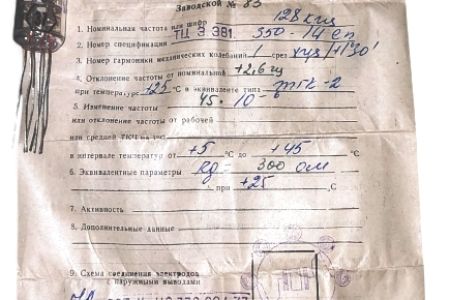 Заводской № 83
1. Номинальная частота или шифр 128 кгц
2. Номер спецификации ТЦ 3 381. 350-14 сп
3. Номер гармоники механических колебаний 1 срез
4. Отклонение частоты от номинальной +2,6 гц
при температуре +25 °С в эквиваленте типа
45·10
5. Изменение частоты
или отклонение частоты от рабочей
или средней
в интервале температур от +5 °С до +45 °С
6. Эквивалентные параметры Rg = 300 ом
при +25 °С
7. Активность
8. Дополнительные данные
9. Схема соединения электродов
с наружными выводами